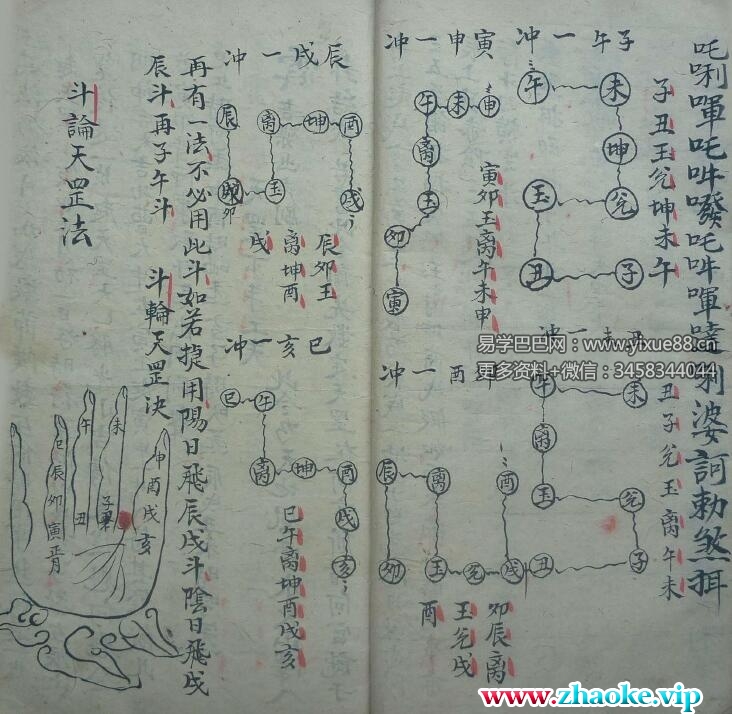 吒唎㖶吒吽㗶吒吽㖶㗲刹娑訶勅煞揖
子午一冲
子丑玉兑坤未午
午 未
坤
玉 兑
丑 子
寅申一冲
午 未 申
离
玉
卯
寅
寅卯玉离午未申
丑未一冲
午 未
离
玉 兑
丑 子
丑子兑玉离午未
卯酉一冲
辰 离 酉
卯 玉 兑 戌
卯辰离
玉兑戌
酉
辰戌一冲
辰 离 坤 酉
卯 玉 戌
辰卯玉
离坤酉
戌
巳亥一冲
巳 午
离 坤 酉
戌
亥
巳午离坤酉戌亥
再有一法不必用此斗如若捷用陽日飛辰戌斗陰日飛戌
辰斗再子午斗
斗輪天罡決
斗論天罡法
巳 午 未 申
辰 酉
卯 丑 子 戌
寅 亥
正月
易学巴巴网：www.yixue88.cn
更多资料+微信：3458344044
www.zhaoke.vip